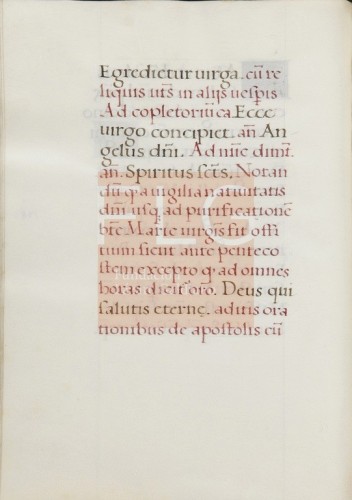 Egredictur uirga. cū re
liquis ut̄s in alijs uesp̄is
Ad cōpletoriū ca. Ecce
uirgo concipiet. an̄. An
gelus dn̄i. Ad nūc dimit̄.
an̄. Spiritus sc̄ts. Notan
dū q̄ a uigilia natiuitatis
dn̄i usq̄ ad purificationē
bt̄e Marie uirgīs fit offi
tium sicut ante penteco
stem excepto q̄ ad omnes
horas dicit̄ or̄o. Deus qui
salutis eternę. aditis ora
tionibus de apostolis cū
FLC